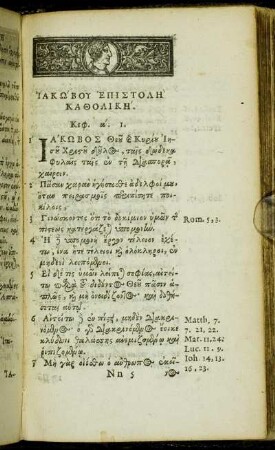 ἸΑΚΩΒΟΥ ἘΠΙΣΤΟΛῊ
ΚΑΘΟΛΙΚΉ.
Κεφ. α. 1.
1 ἸΆΚΩΒΟΣ Θεοῦ καὶ Κυρίου Ἰη-
σοῦ Χριστοῦ δοῦλος, ταῖς δώδεκα
φυλαῖς ταῖς ἐν τῇ διασπορᾷ,
χαίρειν.
2 Πᾶσαν χαρὰν ἡγήσασθε ἀδελφοί μου,
ὅταν πειρασμοῖς περιπέσητε ποι-
κίλοις,
3 Γινώσκοντες ὅτι τὸ δοκίμιον ὑμῶν τῆς
πίστεως κατεργάζεται ὑπομονήν.
Rom. 5, 3.
4 Ἡ δὲ ὑπομονὴ ἔργον τέλειον ἐχέ-
τω, ἵνα ἦτε τέλειοι καὶ ὁλόκληροι, ἐν
μηδενὶ λειπόμενοι.
5 Εἰ δέ τις ὑμῶν λείπεται σοφίας, αἰτεί-
τω παρὰ τοῦ διδόντος Θεοῦ πᾶσιν ἁ-
πλῶς, καὶ μὴ ὀνειδίζοντος, καὶ δοθή-
σεται αὐτῷ.
6 Αἰτείτω δὲ ἐν πίστει, μηδὲν διακρι-
νόμενος· ὁ γὰρ διακρινόμενος, ἔοικε
κλύδωνι θαλάσσης ἀνεμιζομένῳ καὶ
ῥιπιζομένῳ.
Matth. 7.
7. 21, 22.
Mar. 11, 24.
Luc. 11. 9.
Joh. 14, 13.
16, 23.
7 Μὴ γὰρ οἰέσθω ὁ ἄνθρωπος ἐκεῖ-
Nn 5 νος